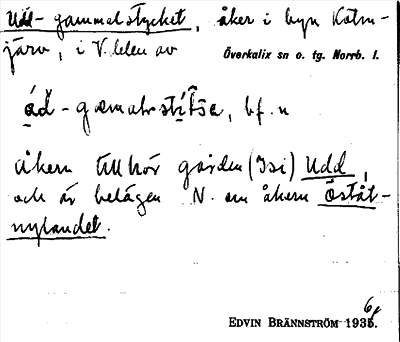 Udd-gammelstycket, åker i byn Kölm-
järv, i V. delen av
Överkalix sn o. tg. Norrb. l.
bf. n
åkern tillhör gården (Isi) Udd,
och är belägen N. om åkern Öståt-
nylandet.
EDVIN BRÄNNSTRÖM 1936.